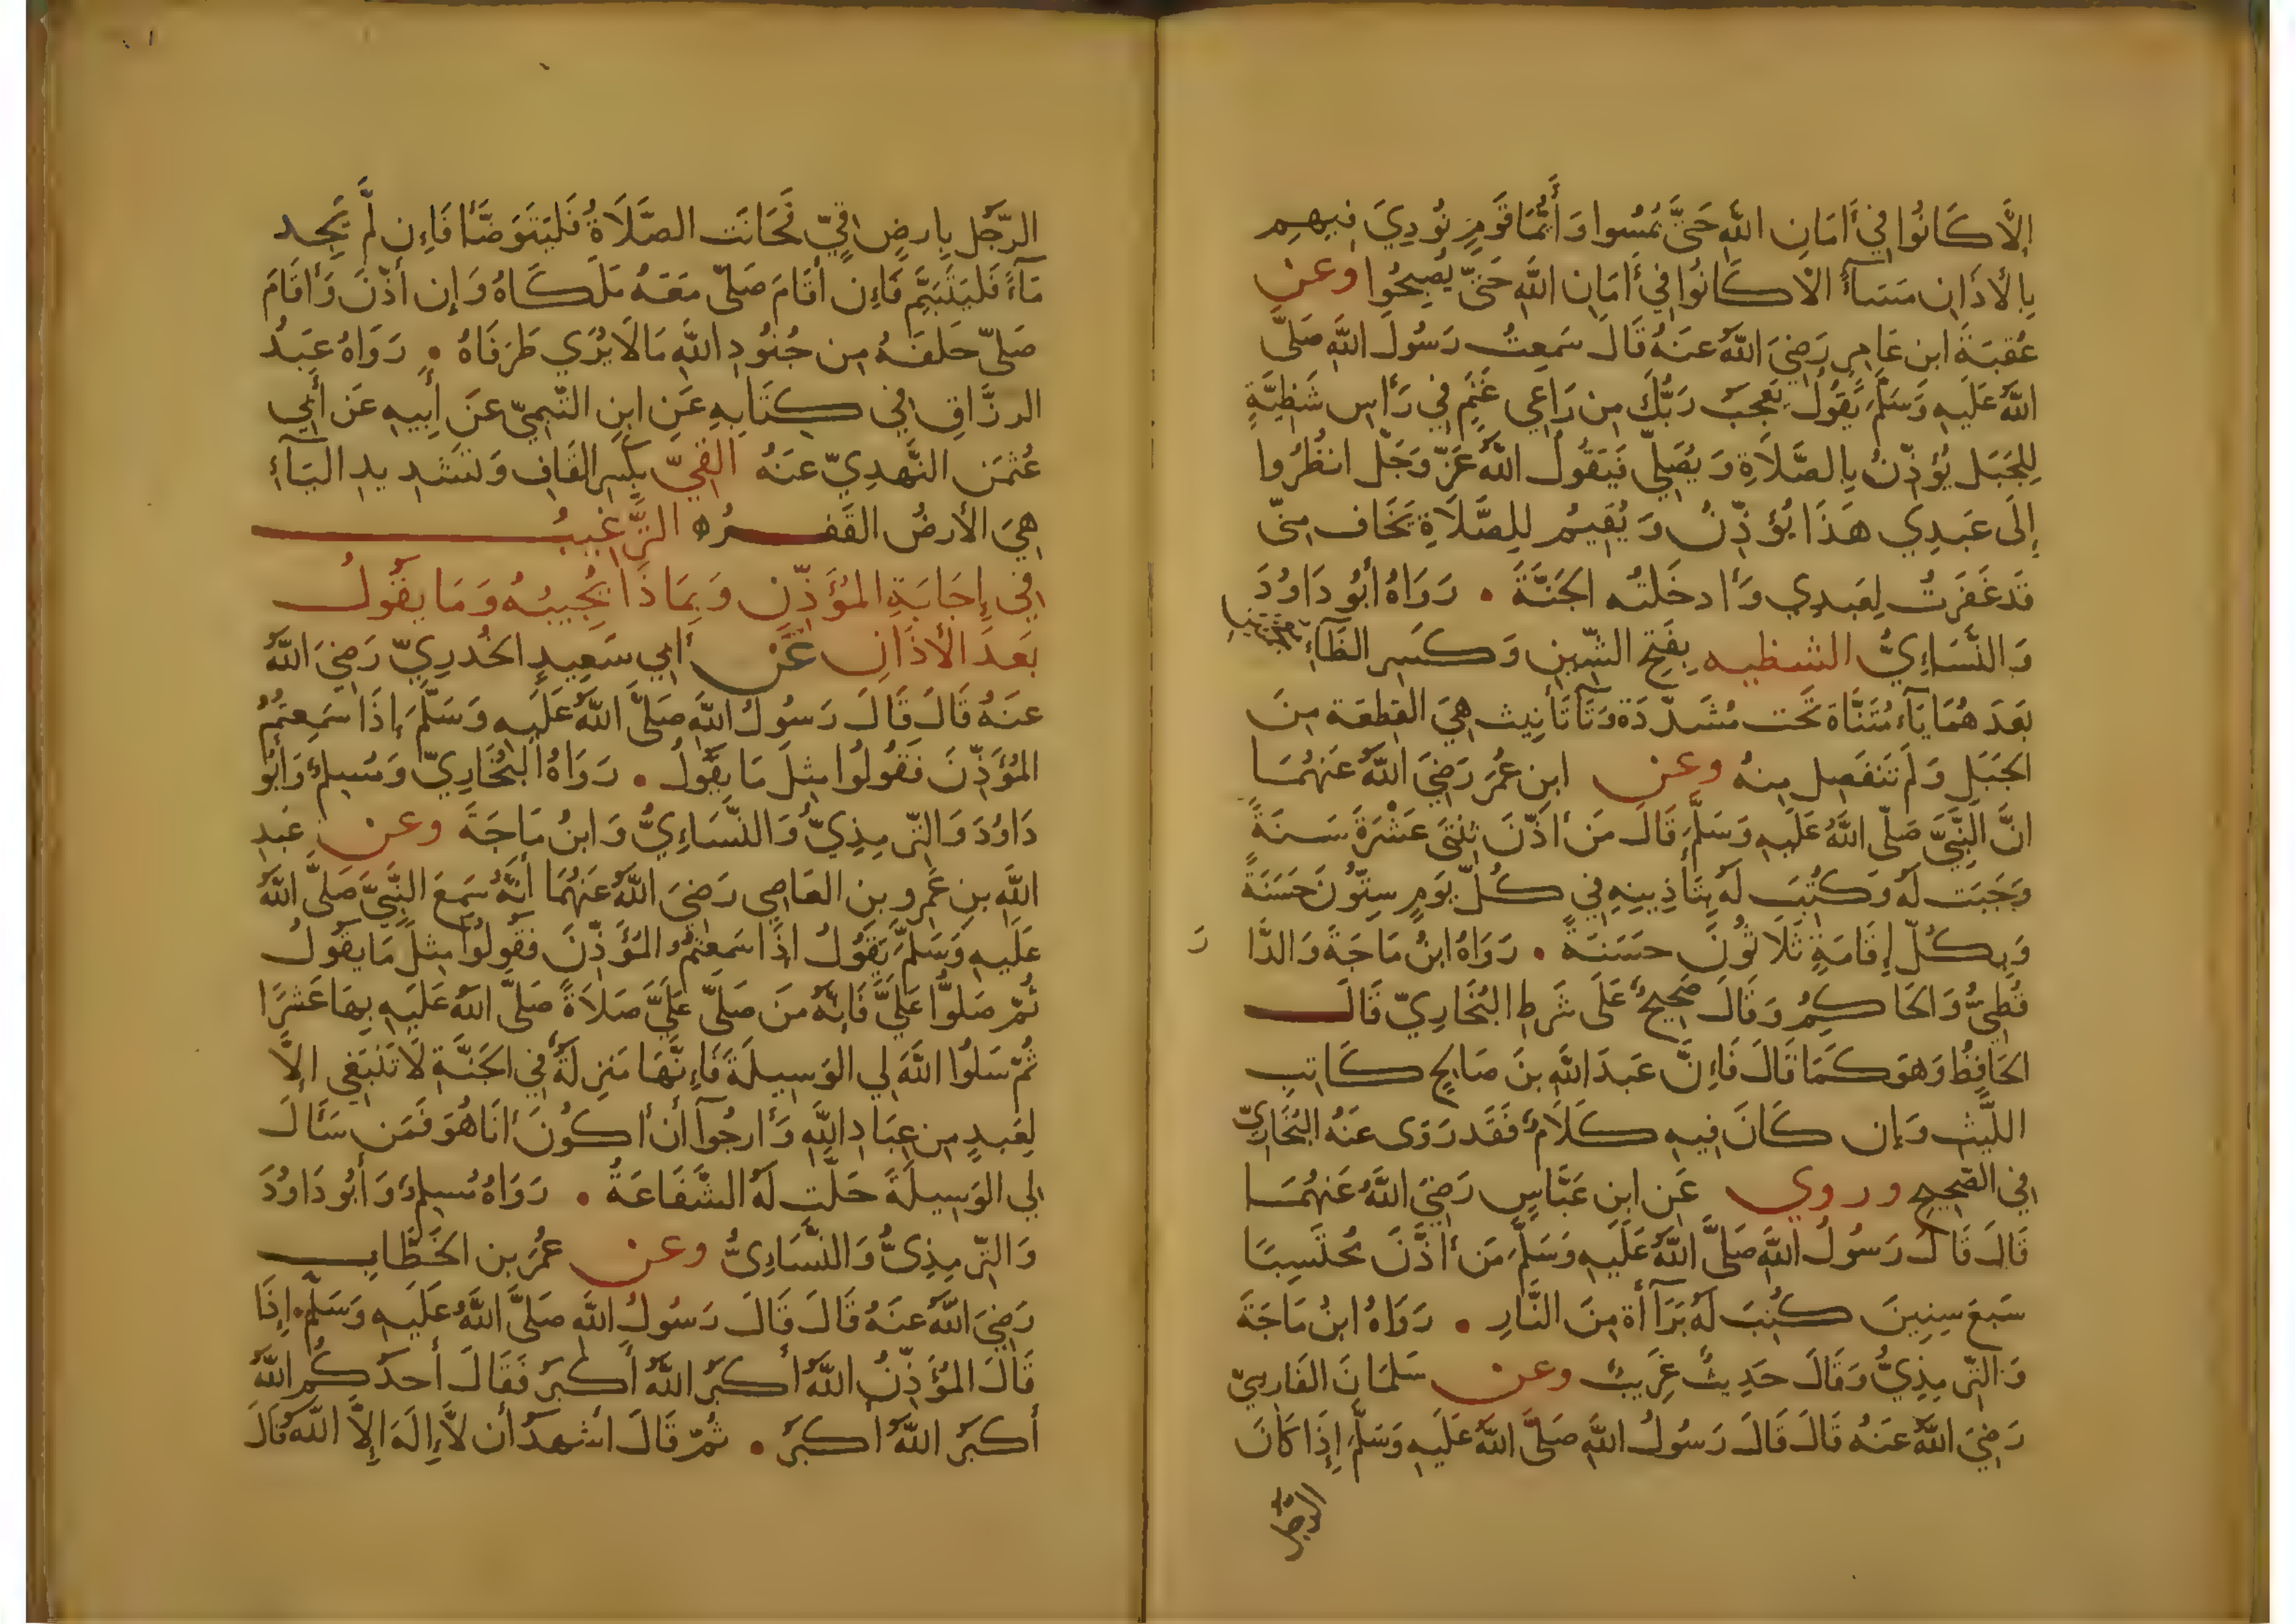 إِلَّا كَانُوا فِي أَمَانِ اللَّهِ حَتَّى يُمْسُوا وَأَيُّمَا قَوْمٍ نُودِيَ فِيهِم
بِالأَذَانِ مَسَآءً الّا كَانُوا فِي أَمَانِ اللَّهِ حَتَّى يُصْبِحُوا وعن
عُقبَةَ ابن عَامِرٍ رَضِيَ اللَّهُ عَنهُ قَالَ سَمِعتُ رَسُولَ اللَّهِ صَلَّى
اللَّهُ عَلَيهِ وَسَلَّمَ يَقُولُ يَعجَبُ رَبُّكَ مِن رَاعِي غَنَمٍ فِي رَأسِ شَظِيَّةٍ
لِلجَبَل يُؤَذِّنُ بِالصَّلَاةِ وَيُصَلِّي فَيَقُولُ اللَّهُ عَزَّ وَجَلّ انظُرُوا
إِلَى عَبدِي هَذَا يُؤَذِّنُ وَيُقِيمُ لِلصَّلَاةِ يَخَاف مِنِّى
قَد غَفَرتُ لِعَبدِي وَأَدخَلتُه الجَنَّةَ . رَوَاهُ أَبُو دَاوُدَ
وَالنَّسَاءِيُّ الشظيه بِفَتحِ الشِّينِ وَكَسرِ الظَّاءِ
بَعدَهُمَا يَآء مُثَنَّاة تَحت مُشَدّدَة وَتَآ تَأنِيث هِيَ القِطعَة مِنَ
الجَبَلِ وَلَم تَنفَصِل مِنهُ وعن ابن عُمَرَ رَضِيَ اللَّهُ عَنهُمَا
انَّ النَّبِيَّ صَلّى اللَّهُ عَلَيهِ وَسَلَّمَ قَالَ مَن أَذَّنَ ثِنتَى عَشْرَةَ سَنَةً
وَجَبَت لَهُ وَكُتِبَ لَهُ بِتَأذِينِهِ فِي كُلّ يَومٍ سِتُّونَ حَسَنَةً
وَبِكُلّ إِقَامَةٍ ثَلَاثُونَ حَسَنَةً . رَوَاهُ ابنُ مَاجَةَ وَالدَّا رَ
قُطنِيُّ وَالحَاكِمُ وَقَالَ صَحِيحٌ عَلَى شَرطِ البُخَارِيّ قَالَ
الحَافِظُ وَهوَ كَمَا قَالَ فَإِنَّ عَبدَ اللَّهِ بنَ صَالحٍ كَاتِب
اللَّيثِ وَإن كَانَ فِيهِ كَلَامٌ فَقَد رَوَى عَنهُ البُخَارِيّ
فِي الصَّحِيحِ وروي عَن ابن عَبَّاسٍ رَضِيَ اللَّهُ عَنهُمَا
قَالَ قَالَ رَسُولُ اللَّهِ صَلَّى اللَّهُ عَلَيهِ وَسَلَّمَ مَن أَذَّنَ مُحتَسِبًا
سَبعَ سِنِينَ كُتِبَ لَهُ بَرَآأة مِنَ النَّارِ . رَوَاهُ ابنُ مَاجَةَ
وَالتِّرمِذِيُّ وَقَالَ حَدِيثٌ غَرِيبٌ وعن سَلمَانَ الفَارِسِيّ
رَضِيَ اللَّهُ عَنهُ قَالَ قَالَ رَسُولُ اللَّهِ صَلَّى اللَّهُ عَلَيهِ وَسَلَّمَ إِذَا كَانَ
الرجل
الرَّجُل بِارضٍ قِيّ فَحَانَت الصَّلَاةُ فَليَتَوَضَّأ فَاءِن لَّم يَجِد
مَآءً فَليَتَيَمَّم فَاءِن أَقَامَ صَلّى مَعَهُ مَلَكَاهُ وَإِن أَذَّنَ وَأَقَامَ
صَلّى خَلفَهُ مِن جُنُودِ اللَّهِ مَا لَا يُرَي طَرَفَاهُ . رَوَاهُ عَبدُ
الرزَّاقِ فِي كِتَابِهِ عَنِ ابنِ التَّيمِيّ عَن أَبِيهِ عَن أَبِي
عُثمَن النَّهدِيّ عَنهُ القِيّ بِكَسرِ القَافِ وَتَشدِيدِ اليَآءِ
هِيَ الأَرضُ القَفرُ ه التَّرغِيبُ
فِي إِجَابَةِ المُؤَذِّنِ وَبِمَاذَا يُجِيبُهُ وَمَا يَقُولُ
بَعدَ الأَذَانِ عَن أَبِي سَعِيدٍ الخُدرِيّ رَضِيَ اللَّهُ
عَنهُ قَالَ قَالَ رَسُولُ اللَّهِ صَلَّى اللَّهُ عَلَيهِ وَسَلَّمَ إِذَا سَمِعتُمُ
المُؤَذِّنَ فَقُولُوا مِثلَ مَا يَقُولُ . رَوَاهُ البُخَارِيّ وَمُسلِمٌ وَأَبُو
دَاوُدَ وَالتِّرمِذِيُّ وَالنَّسَاءِيُّ وَابنُ مَاجَةَ وعن عَبدِ
اللَّهِ بنِ عَمرو بن العَاصِي رَضِيَ اللَّهُ عَنهُمَا أَنَّهُ سَمِعَ النَّبِيَّ صَلَّى اللَّهُ
عَلَيهِ وَسَلَّمَ يَقُولُ اذَا سَمِعتُمُ المُؤَذِّنَ فَقُولُوا مِثلَ مَا يَقُولُ
ثُمّ صَلُّوا عَلَيَّ فَاِنَّهُ مَن صَلَّى عَلَيَّ صَلَاةً صَلَّى اللَّهُ عَلَيهِ بِهَا عَشرًا
ثُمّ سَلُوا اللَّهَ لِي الوَسِيلَةَ فَاءِنَّهَا مَنزِلَةٌ فِي الجَنَّةِ لَا تَنبَغِي الَّا
لِعَبدٍ مِن عِبَادِ اللَّهِ وَأَرجُوا أَن أَكُونَ أَنَا هُوَ فَمَن سَأَلَ
لِي الوَسِيلَةَ حَلَّت لَهُ الشَّفَاعَةُ . رَوَاهُ مُسلِمٌ وَأَبُو دَاوُدَ
وَالتِّرمِذِيُّ وَالنَّسَاءِيُّ وعن عُمَرَ بن الخَطَّابِ
رَضِيَ اللَّهُ عَنهُ قَالَ قَالَ رَسُولُ اللَّهِ صَلَّى اللَّهُ عَلَيهِ وَسَلَّمَ إِذَا
قَالَ المُؤَذِّنُ اللَّهُ أَكبَرُ اللَّهُ أَكبَرُ فَقَالَ أَحَدُكُم اللَّهُ
أَكبَرُ اللَّهُ أَكبَرُ . ثُمّ قَالَ أَشهَدُ أَن لَّاءِلَهَ إِلَّا اللَّهُ قَالَ